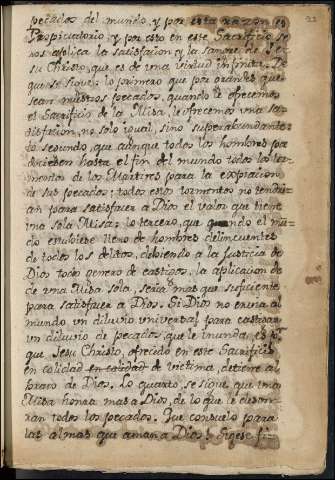 22
pecados del mundo, y por esta razon es
Propiciatorio: y por esto en este Sacrificio se
nos aplica la satisfacion, y la sangre de Je-
su Christo, que es de una virtud infinita. De
que se sigue: lo primero que por grandes que
sean nuestros pecados, quando le ofrecemos
es Sacrificio de la Misa, le ofrecemos una sa-
tisfacion, no solo igual, sino superabundante:
lo segundo, que aunque todos los hombres pa-
deciesen hasta el fin del mundo todos los tor-
mentos de los Martires para la expiacion
de sus pecados; todos estos tormentos no tendri-
an para satisfacer a Dios el valor que tiene
una sola Misa: lo tercero, que quando el mũ-
do estubiese lleno de hombres delinquentes
de todos los delitos, debiendo a la Justicia de
Dios todo genero de castigos, la aplicacion de
de una Misa sola, seria mas que suficiente
para satisfacer a Dios. Si Dios no envia al
mundo un diluvio universal para castigar
un diluvio de pecados, que le inunda, es pr
que Jesu Christo, ofrecido en este Sacrificio
en calidad en calidad de victima, detiene al
brazo de Dios. Lo quarto, se sigue, que una
Misa honra mas a Dios, de lo que le deson-
ran todos los pecados. Que consuelo para
las almas que aman a Dios! Sigese